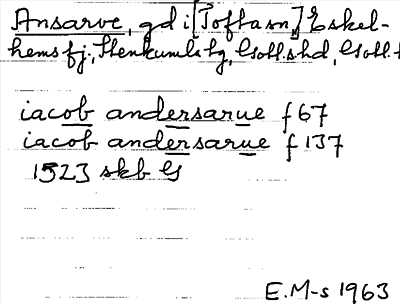 Ansarve, gd i [Tofta sn,] Eskel-
hems fj., Stenkumla tg, Gotl. shd, Gotl. l
iacob andersarue f 67
iacob andersarue f 137
1523 skb G
E.M-s 1963